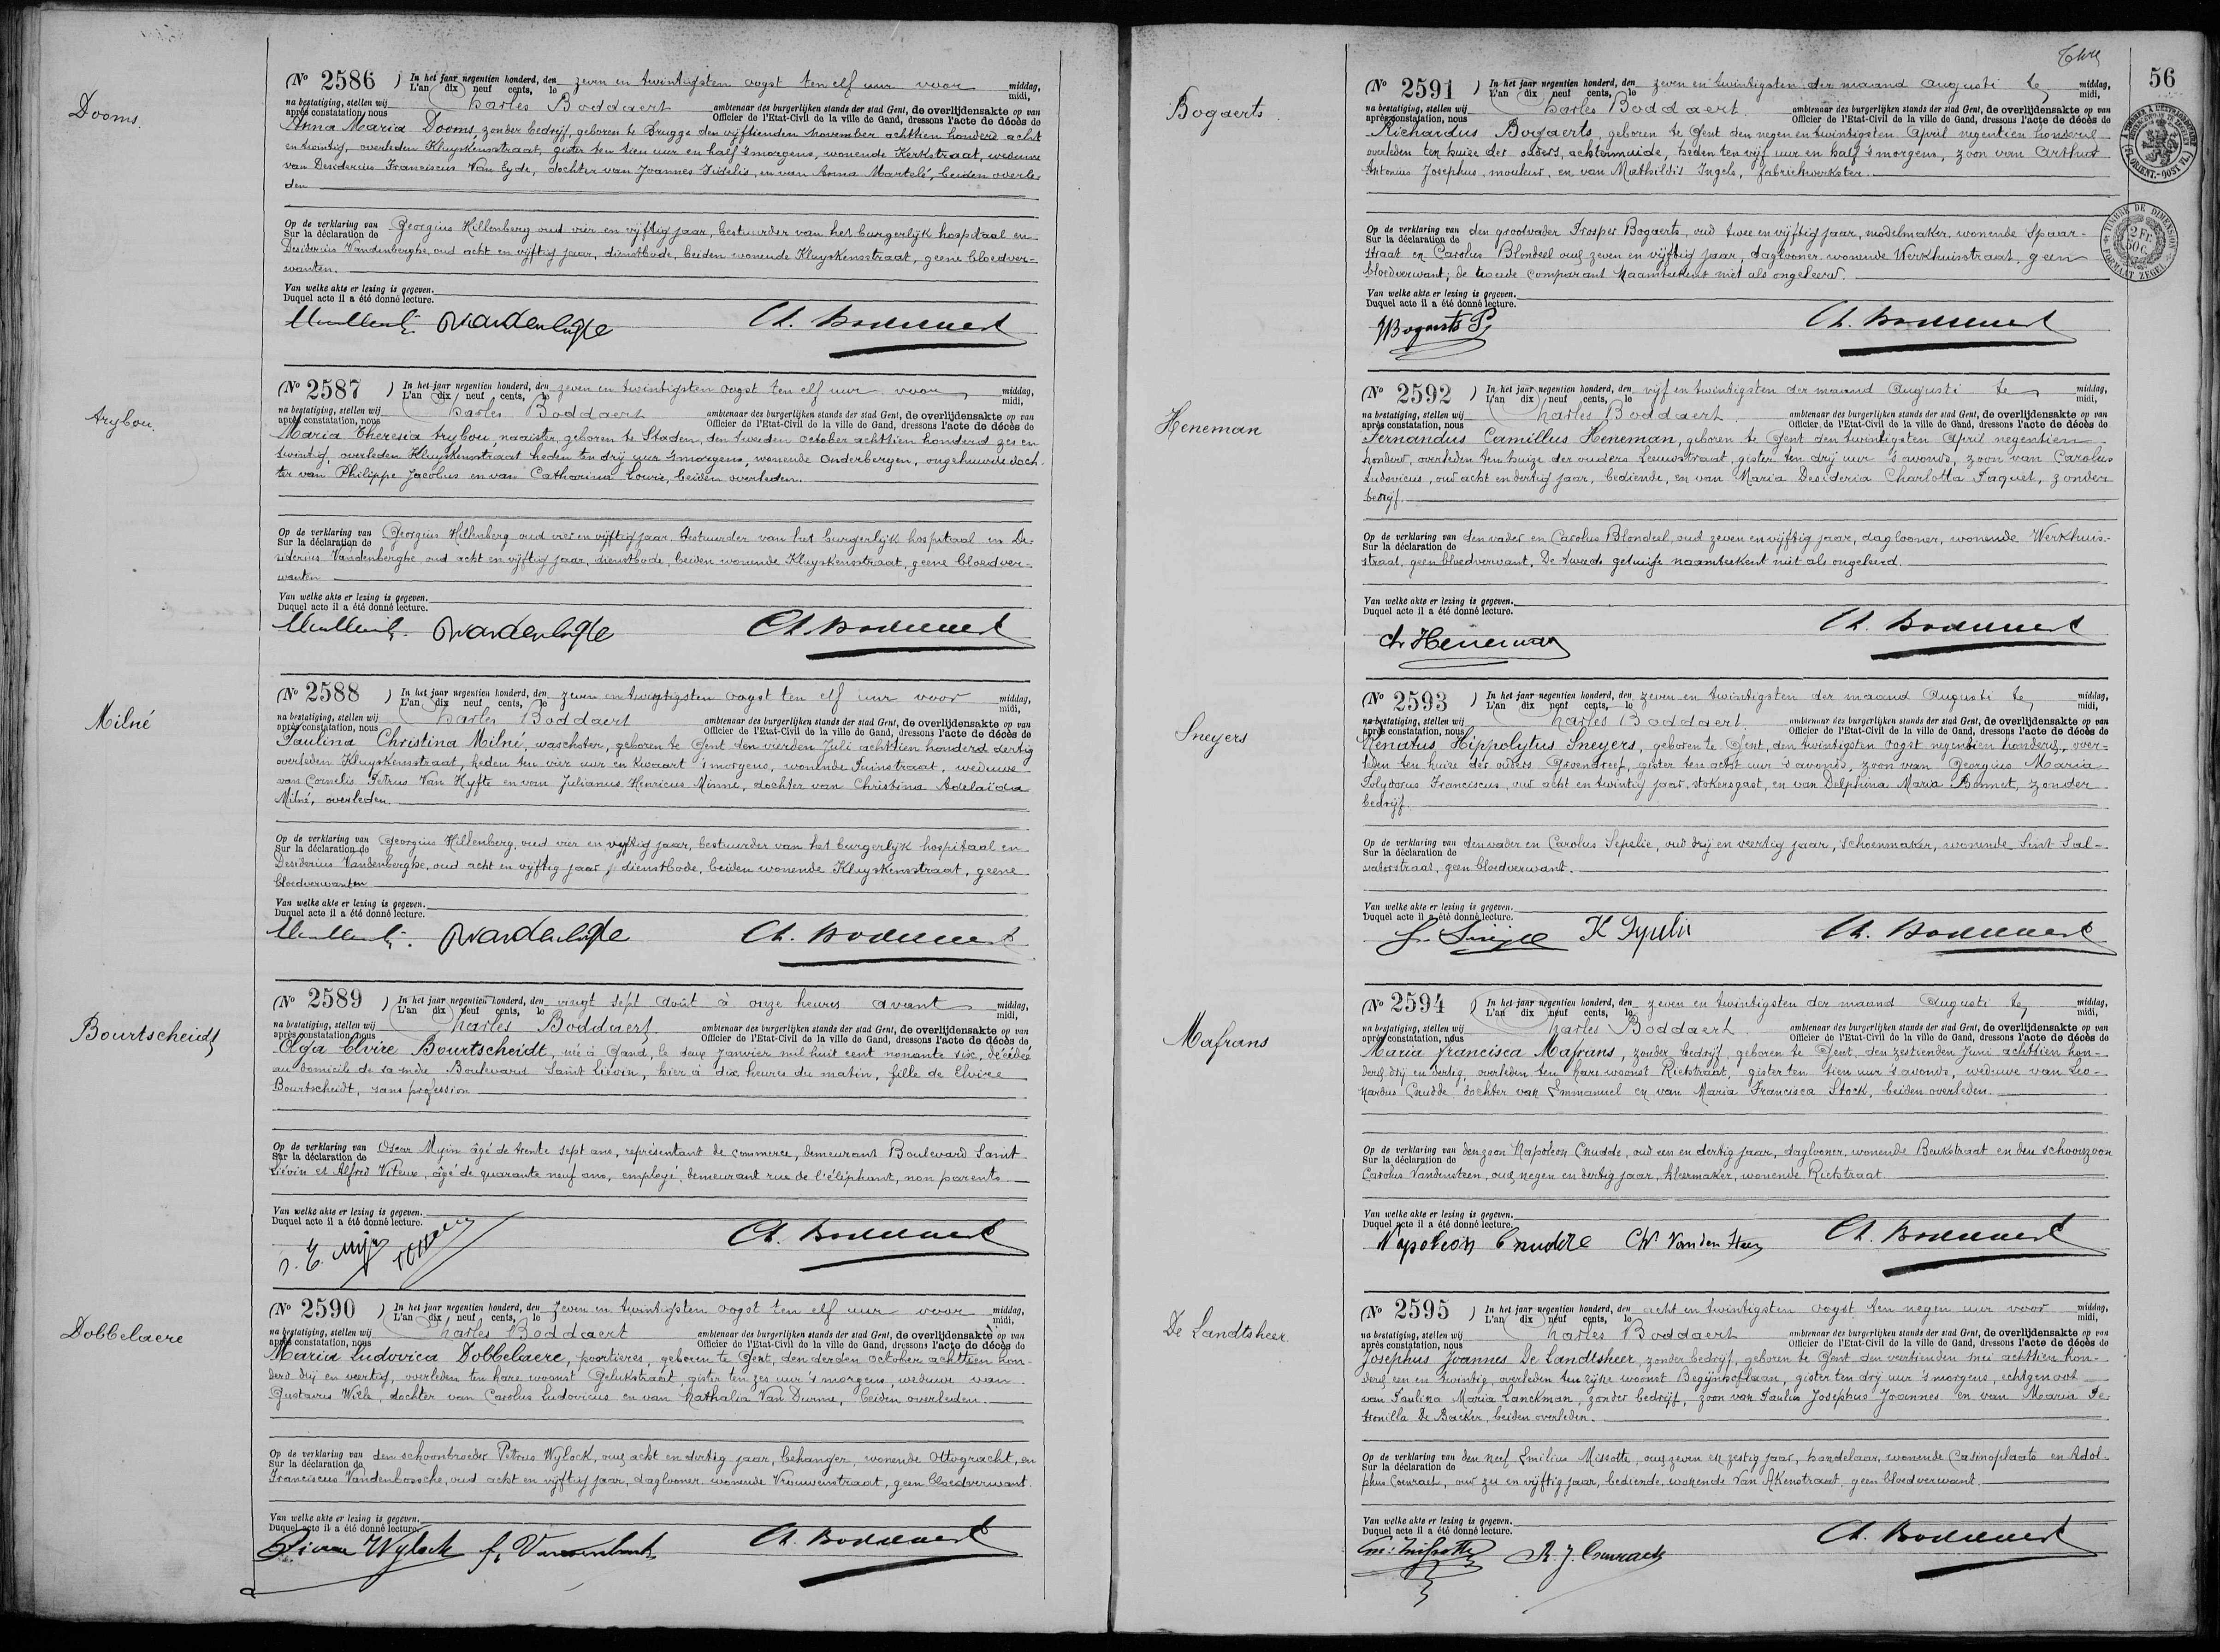 Dooms.
(No 2586 ) In het jaar negentien honderd, den zeven en twintigsten oogst ten elf uur voor middag,
L'an dix neuf cents, le midi,
na bestatiging, stellen wij Charles Boddaert ambtenaar des burgerlijken stands der stad Gent, de overlijdensakte op van
après constatation, nous Officier de l'Etat-Civil de la ville de Gand, dressons l'acte de décès de
Anna Maria Dooms, zonder bedrijf, geboren te Brugge den vijftienden november achttien honderd acht
en twintig, overleden Kluyskensstraat, gister ten tien uur en half 's morgens, wonende Kerkstraat, weduwe
van Desiderius Franciscus Van Eyde, dochter van Joannes Fidelis en van Anna Martelé, beiden overle-
den
Op de verklaring van Georgius Hillenberg oud vier en vijftig jaar, bestuurder van het burgerlijk hospitaal en
Sur la déclaration de
Desiderius Vandenberghe, oud acht en vijftig jaar, dienstbode, beiden wonende Kluyskensstraat, geene bloedver-
wanten.
Van welke akte er lezing is gegeven.
Duquel acte il a été donné lecture.
Ch. Boddaert
Arybou.
(No 2587 ) In het jaar negentien honderd, den zeven en twintigsten oogst ten elf uur voor middag,
L'an dix neuf cents, le midi,
na bestatiging, stellen wij Charles Boddaert ambtenaar des burgerlijken stands der stad Gent, de overlijdensakte op van
après constatation, nous Officier de l'Etat-Civil de la ville de Gand, dressons l'acte de décès de
Maria Theresia Arybou, naaister, geboren te Staden, den tweeden october achttien honderd zes en
twintig, overleden Kluyskensstraat heden ten drij uur 's morgens, wonende Onderbergen, ongehuwde doch-
ter van Philippe Jacobus en van Catharina Lowie, beiden overleden.
Op de verklaring van Georgius Hillenberg oud vier en vijftig jaar, bestuurder van het burgerlijk hospitaal en De-
Sur la déclaration de
siderius Vandenberghe oud acht en vijftig jaar, dienstbode, beiden wonende Kluyskensstraat, geene bloedver-
wanten
Van welke akte er lezing is gegeven.
Duquel acte il a été donné lecture.
Ch. Boddaert
Milné
(No 2588 ) In het jaar negentien honderd, den zeven en twintigsten oogst ten elf uur voor middag,
L'an dix neuf cents, le midi,
na bestatiging, stellen wij Charles Boddaert ambtenaar des burgerlijken stands der stad Gent, de overlijdensakte op van
après constatation, nous Officier de l'Etat-Civil de la ville de Gand, dressons l'acte de décès de
Paulina Christina Milné, waschster, geboren te Gent den vierden Juli achttien honderd dertig
overleden Kluyskensstraat, heden ten vier uur en kwaart 's morgens, wonende Tuinstraat, weduwe
van Cornelis Petrus Van Hyfte en van Julianus Henricus Minne, dochter van Christina Adelaïda
Milné, overleden.
Op de verklaring van Georgius Hillenberg, oud vier en vijftig jaar, bestuurder van het burgerlijk hospitaal en
Sur la déclaration de
Desiderius Vandenberghe, oud acht en vijftig jaar, dienstbode, beiden wonende Kluyskensstraat, geene
bloedverwanten
Van welke akte er lezing is gegeven.
Duquel acte il a été donné lecture.
Ch. Boddaert
Bourtscheidt
(No 2589 ) In het jaar negentien honderd, den vingt sept août à onze heures avant middag,
L'an dix neuf cents, le midi,
na bestatiging, stellen wij Charles Boddaert ambtenaar des burgerlijken stands der stad Gent, de overlijdensakte op van
après constatation, nous Officier de l'Etat-Civil de la ville de Gand, dressons l'acte de décès de
Olga Elvire Bourtscheidt, née à Gand, le deux Janvier mil huit cent nonante six, décédée
au domicile de sa mère Boulevard Saint Liévin, hier à dix heures du matin, fille de Elvire
Bourtscheidt, sans profession
Op de verklaring van Oscar Myin âgé de trente sept ans, représentant de commerce, demeurant Boulevard Saint
Sur la déclaration de
Liévin et Alfred Viteux, âgé de quarante neuf ans, employé, demeurant rue de l'éléphant, non parents.
Van welke akte er lezing is gegeven.
Duquel acte il a été donné lecture.
Ch. Boddaert
Dobbelaere
(No 2590 ) In het jaar negentien honderd, den zeven en twintigsten oogst ten elf uur voor middag,
L'an dix neuf cents, le midi,
na bestatiging, stellen wij Charles Boddaert ambtenaar des burgerlijken stands der stad Gent, de overlijdensakte op van
après constatation, nous Officier de l'Etat-Civil de la ville de Gand, dressons l'acte de décès de
Maria Ludovica Dobbelaere, poortieres, geboren te Gent, den derden October achttien hon-
derd drij en veertig, overleden ten hare woonst Gelukstraat, gister ten zes uur 's morgens, weduwe van
Gustavus Wille, dochter van Carolus Ludovicus en van Nathalia Van Durme, beiden overleden.
Op de verklaring van den schoonbroeder Petrus Wylock, oud acht en dertig jaar, behanger, wonende Ottogracht, en
Sur la déclaration de
Franciscus Vandenbossche, oud acht en vijftig jaar, daglooner wonende Vrouwenstraat, geen bloedverwant.
Van welke akte er lezing is gegeven.
Duquel acte il a été donné lecture.
Wylock Ch. Boddaert
56
Bogaerts.
(No 2591 ) In het jaar negentien honderd, den zeven en twintigsten der maand Augusti te middag,
L'an dix neuf cents, le midi,
na bestatiging, stellen wij Charles Boddaert ambtenaar des burgerlijken stands der stad Gent, de overlijdensakte op van
après constatation, nous Officier de l'Etat-Civil de la ville de Gand, dressons l'acte de décès de
Richardus Bogaerts, geboren te Gent den negen en twintigsten April negentien honderd
overleden ten huize der ouders, achtermuide, heden ten vijf uur en half 's morgens, zoon van Arthur
Antonius Josephus, mouleur, en van Mathildis Ingels, fabriekwerkster.
Op de verklaring van den grootvader Prosper Bogaerts, oud twee en vijftig jaar, modelmaker, wonende Spaar-
Sur la déclaration de
straat en Carolus Blondeel oud zeven en vijftig jaar, daglooner wonende Werkhuisstraat, geen
bloedverwant; de tweede comparant naamteekent niet als ongeleerd.
TIMBRE DE DIMENSION
2 Fr. 50 C.
FORMAAT ZEGEL
Van welke akte er lezing is gegeven.
Duquel acte il a été donné lecture.
Bogaerts P. Ch. Boddaert
Heneman
(No 2592 ) In het jaar negentien honderd, den vijf en twintigsten der maand Augusti te middag,
L'an dix neuf cents, le midi,
na bestatiging, stellen wij Charles Boddaert ambtenaar des burgerlijken stands der stad Gent, de overlijdensakte op van
après constatation, nous Officier de l'Etat-Civil de la ville de Gand, dressons l'acte de décès de
Fernandus Camillus Heneman, geboren te Gent den twintigsten April negentien
honderd, overleden ten huize der ouders Leeuwstraat, gister ten drij uur 's avonds, zoon van Carolus
Ludovicus, oud acht en dertig jaar, bediende, en van Maria Desideria Charlotta Paquet, zonder
bedrijf
Op de verklaring van den vader en Carolus Blondeel, oud zeven en vijftig jaar, daglooner, wonende Werkhuis-
Sur la déclaration de
straat, geen bloedverwant, De tweede getuige naamteekent niet als ongeleerd.
Van welke akte er lezing is gegeven.
Duquel acte il a été donné lecture.
Ch Heneman Ch. Boddaert
Sneyers
(No 2593 ) In het jaar negentien honderd, den zeven en twintigsten der maand Augusti te middag,
L'an dix neuf cents, le midi,
na bestatiging, stellen wij Charles Boddaert ambtenaar des burgerlijken stands der stad Gent, de overlijdensakte op van
après constatation, nous Officier de l'Etat-Civil de la ville de Gand, dressons l'acte de décès de
Renatus Hippolytus Sneyers, geboren te Gent, den twintigsten oogst negentien honderd, over-
leden ten huize der ouders Groendreef, gister ten acht uur 's avonds, zoon van Georgius Maria
Polydorus Franciscus, oud acht en twintig jaar, stokersgast, en van Delphina Maria Bonnet, zonder
bedrijf.
Op de verklaring van den vader en Carolus Sepelie, oud drij en veertig jaar, schoenmaker, wonende Sint Sal-
Sur la déclaration de
vatorstraat, geen bloedverwant.
Van welke akte er lezing is gegeven.
Duquel acte il a été donné lecture.
Ch. Boddaert
Mafrans
(No 2594 ) In het jaar negentien honderd, den zeven en twintigsten der maand Augusti te middag,
L'an dix neuf cents, le midi,
na bestatiging, stellen wij Charles Boddaert ambtenaar des burgerlijken stands der stad Gent, de overlijdensakte op van
après constatation, nous Officier de l'Etat-Civil de la ville de Gand, dressons l'acte de décès de
Maria Francisca Mafrans, zonder bedrijf, geboren te Gent, den zestienden Juni achttien hon-
derd drij en dertig, overleden ten hare woonst Rietstraat, gister ten tien uur 's avonds, weduwe van Leo-
nardus Cnudde, dochter van Emmanuel en van Maria Francisca Stock, beiden overleden.
Op de verklaring van den zoon Napoleon Cnudde, oud een en dertig jaar, daglooner, wonende Beukstraat en den schoonzoon
Sur la déclaration de
Carolus Vandensteen, oud negen en dertig jaar, kleermaker, wonende Rietstraat.
Van welke akte er lezing is gegeven.
Duquel acte il a été donné lecture.
Napoleon Cnudde Ch Vanden Steen Ch. Boddaert
De Landtsheer.
(No 2595 ) In het jaar negentien honderd, den acht en twintigsten oogst ten negen uur voor middag,
L'an dix neuf cents, le midi,
na bestatiging, stellen wij Charles Boddaert ambtenaar des burgerlijken stands der stad Gent, de overlijdensakte op van
après constatation, nous Officier de l'Etat-Civil de la ville de Gand, dressons l'acte de décès de
Josephus Joannes De Landtsheer, zonder bedrijf, geboren te Gent den veertienden mei achttien hon-
derd een en twintig, overleden ten zijne woonst Begijnhoflaan, gister ten drij uur 's morgens, echtgenoot
van Paulina Maria Lanckman, zonder bedrijf, zoon van Paulin Josephus Joannes en van Maria Pe-
tronilla De Backer, beiden overleden.
Op de verklaring van den neef Emilius Missotte, oud zeven en zestig jaar, handelaar, wonende Casinoplaats en Adol-
Sur la déclaration de
phus Coenraet, oud zes en vijftig jaar, bediende, wonende Van Akenstraat, geen bloedverwant.
Van welke akte er lezing is gegeven.
Duquel acte il a été donné lecture.
Em. Missotte A. J. Coenraets Ch. Boddaert